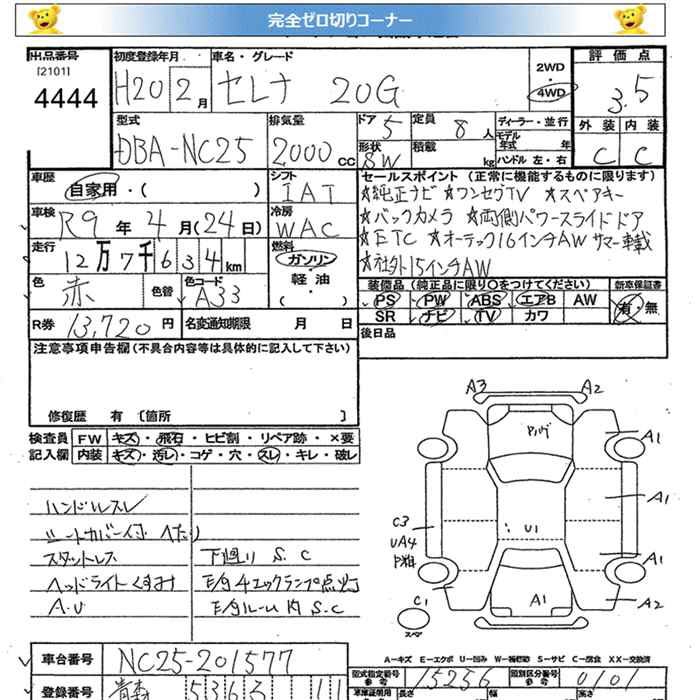 完全ゼロ切りコーナー
出品番号
[2101]
4444
初度登録年月
H20 2月
車名・グレード
セレナ 20G
2WD
・
4WD
評価点
3.5
外装 内装
C C
型式
DBA-NC25
排気量
2000 cc
ドア 5
形状 5W
定員 8人
積載 kg
ディーラー・並行
モデル年式 年式
ハンドル 左・右
車歴
自家用・( )
シフト
IAT
車検
R9年4月(24日)
冷房
WAC
走行
12万7千634km
燃料
ガソリン
・
軽油
( )
色
赤
色替
色コード
A33
R券 13,720円
名変通知期限 月 日
セールスポイント (正常に機能するものに限ります)
☆純正ナビ ☆ワンセグTV ☆スペアキー
☆バックカメラ ☆両側パワースライドドア
☆ETC ☆オーテック16インチAW サマー車載
☆社外15インチAW
装備品 (純正品に限り○をつけてください)
PS PW ABS エアB AW
SR ナビ TV カワ
新車保証書
有・無
後日品
注意事項申告欄(不具合内容等は具体的に記入して下さい)
修復歴 有 〔箇所 〕
検査員記入欄
FW キズ・飛石・ヒビ割・リペア跡・×要
内装 キズ・汚レ・コゲ・穴・スレ・キレ・破レ
ハンドルスレ
シートカバー付 ヘたり
スタットレス
ヘッドライトくすみ
A.U
下廻り S.C
E/g チェックランプ点灯
E/gルーム内 S.C
A3 A2
A1
A1
C3
UA4
U1
A1
A1
A2
C1
スペア
A-キズ E-エクボ U-凹み W-補修跡 S-サビ C-腐食 XX-交換済
車台番号 NC25-201577
型式指定番号 参考 15256
類別区分番号 参考 0101
登録番号 青森 5363 11
長さ 幅 高さ